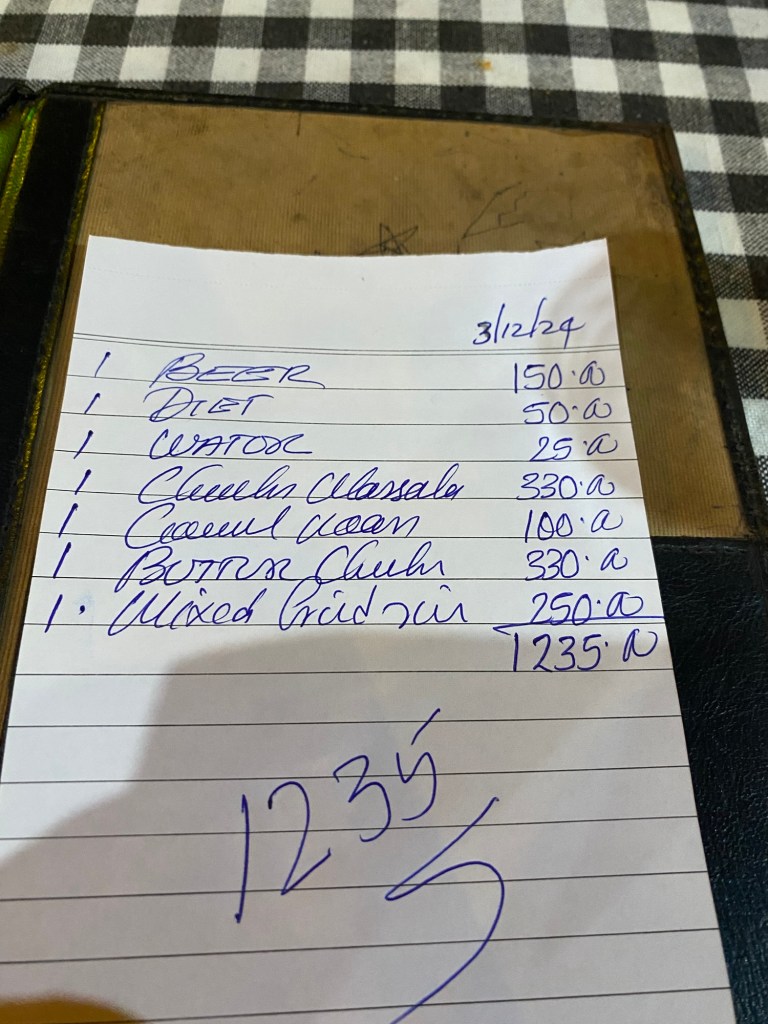 3/12/24
1 BEER 150.00
1 DIET 50.00
1 WATOR 25.00
1 Massala 330.00
1 100.00
1 BUTTER 330.00
1. Mixed 250.00
1235.00
1235